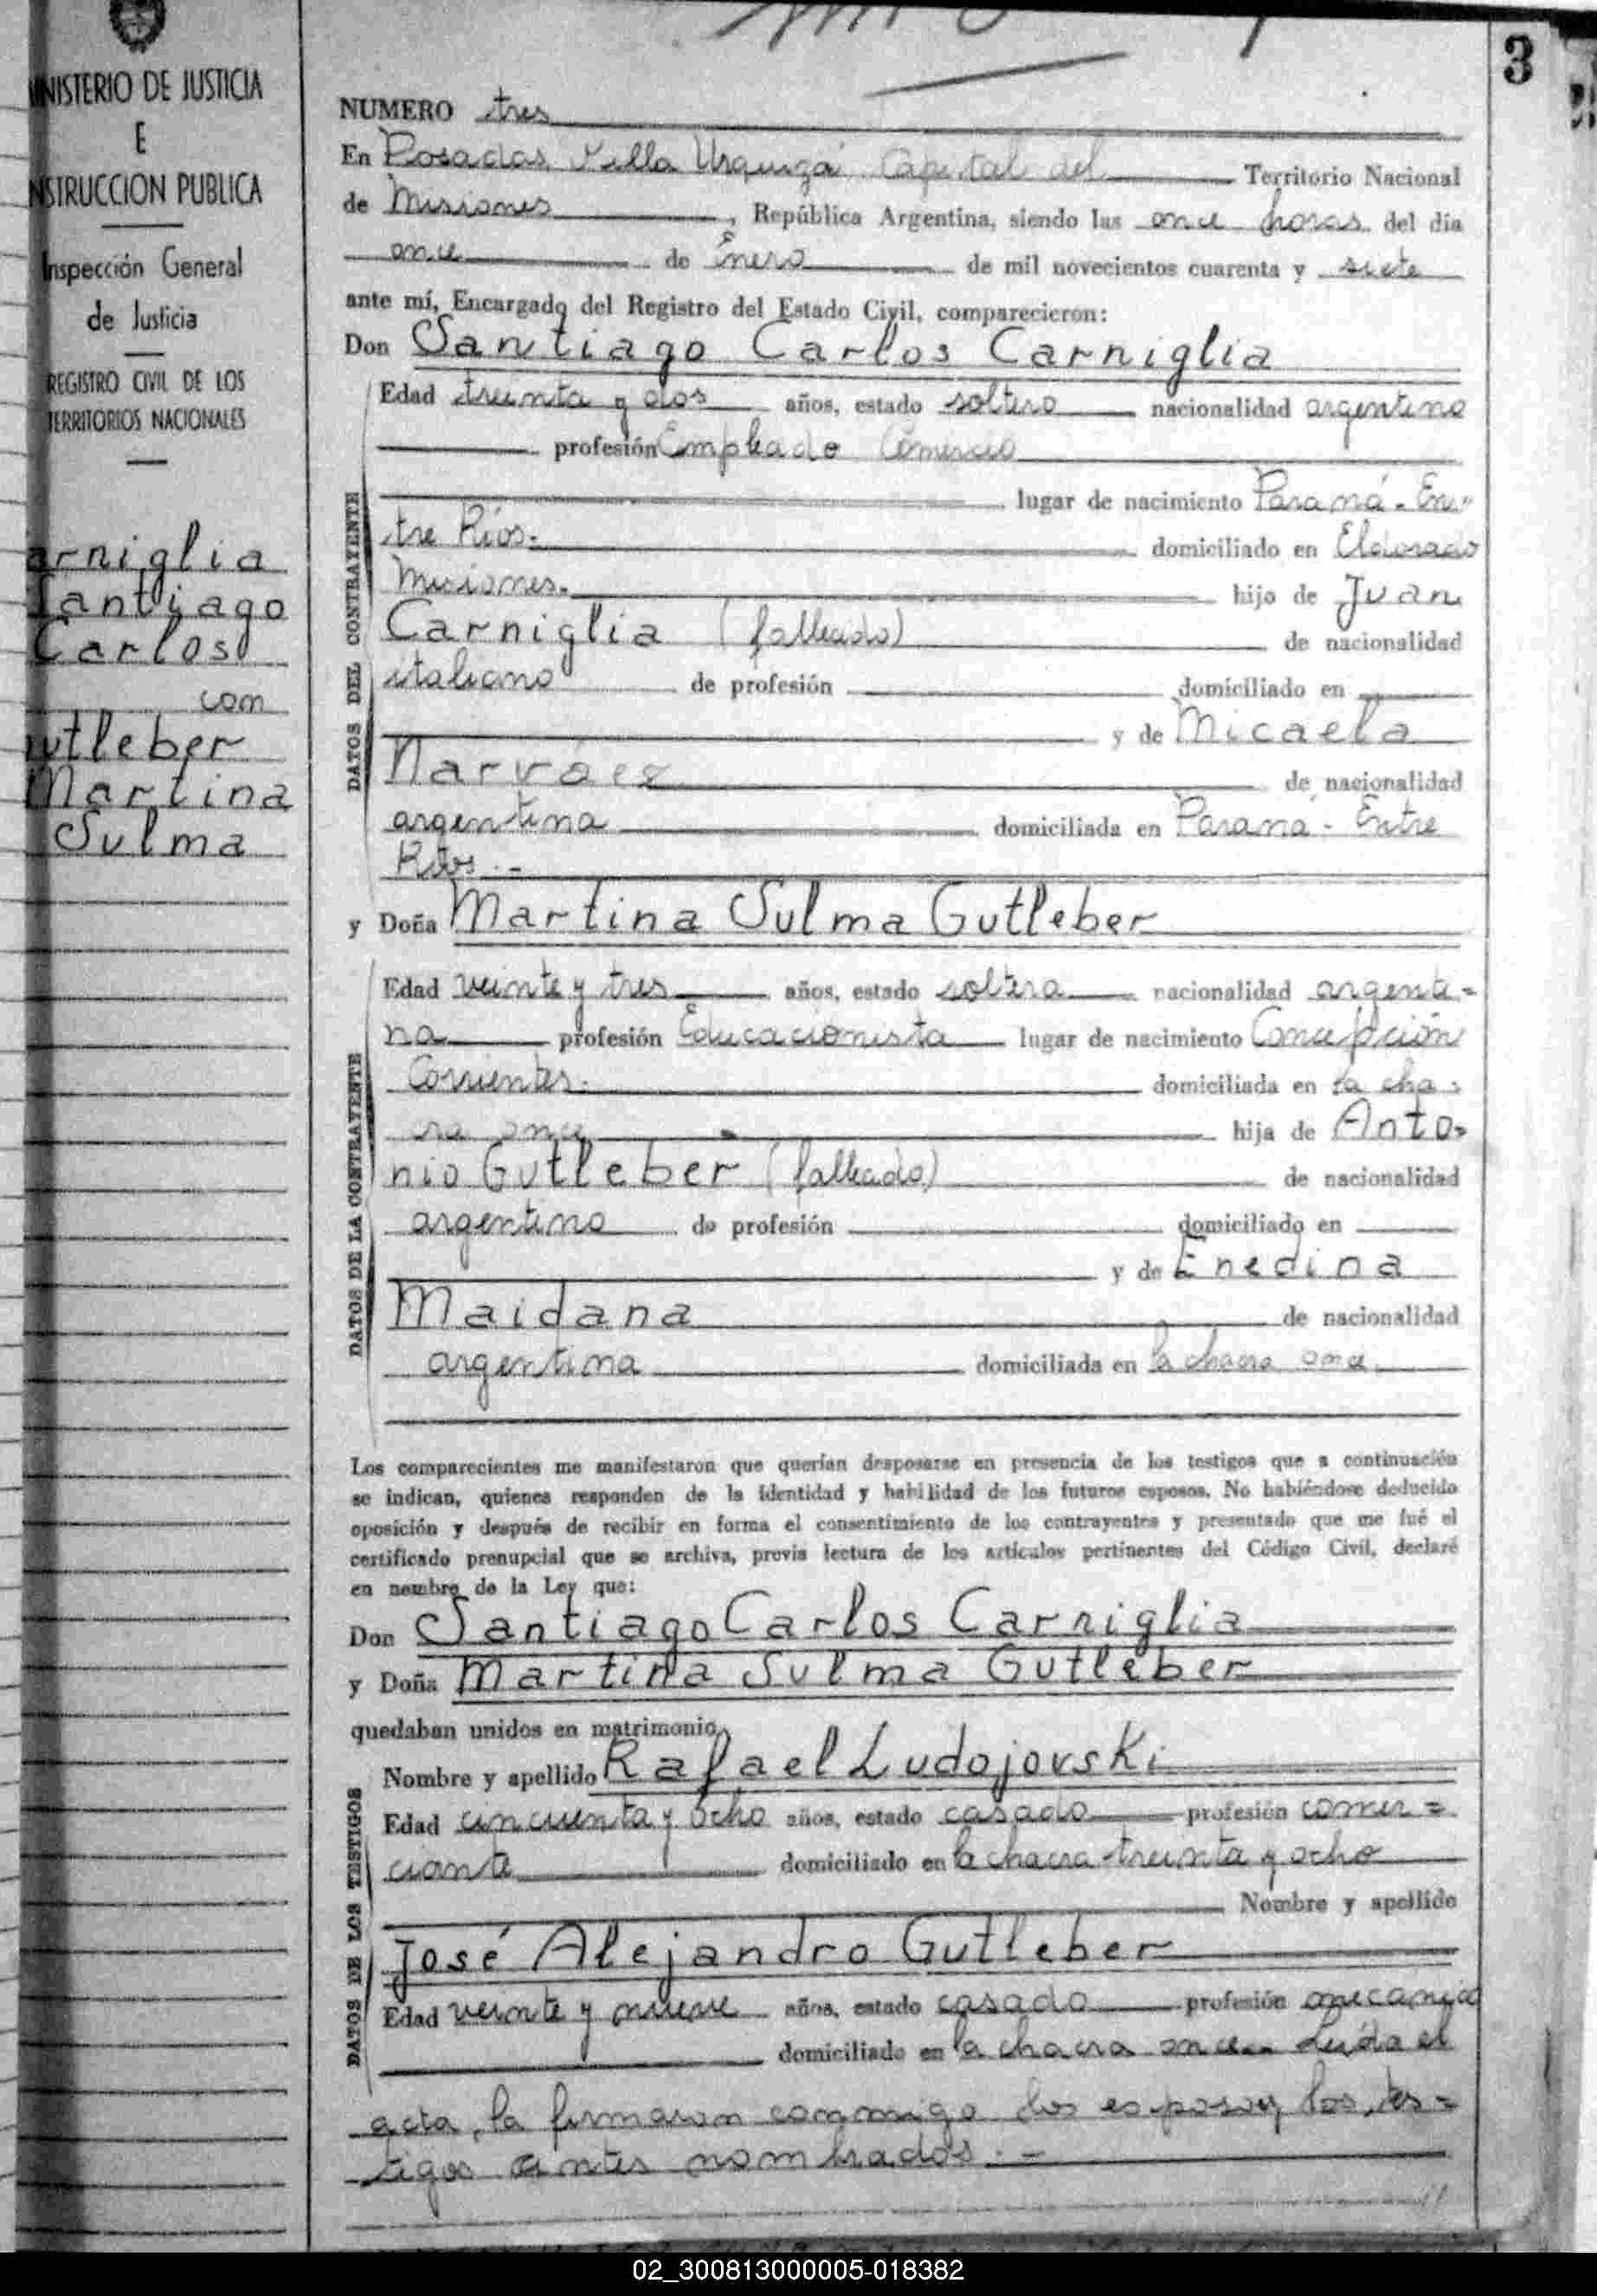 MINISTERIO DE JUSTICIA
E
INSTRUCCION PUBLICA
Inspección General
de Justicia
REGISTRO CIVIL DE LOS
TERRITORIOS NACIONALES
arniglia
Santiago
Carlos
con
utleber
Martina
Sulma
3
NUMERO tres
En Posadas, Villa Urquiza Capital del Territorio Nacional
de Misiones, República Argentina, siendo las once horas del día
once de Enero de mil novecientos cuarenta y siete
ante mí, Encargado del Registro del Estado Civil, comparecieron:
Don Santiago Carlos Carniglia
Edad treinta y dos años, estado soltero nacionalidad argentino
profesión Empleado Comercio
lugar de nacimiento Paraná - En-
tre Ríos.- domiciliado en Eldorado
Misiones.- hijo de Juan
Carniglia (fallecido) de nacionalidad
italiano de profesión domiciliado en
y de Micaela
Narváez de nacionalidad
argentina domiciliada en Paraná - Entre
Ríos.-
DATOS DEL CONTRAYENTE
y Doña Martina Sulma Gutleber
Edad veinte y tres años, estado soltera nacionalidad argenti=
na profesión Educacionista lugar de nacimiento Concepción
Corrientes.- domiciliada en la cha-
cra once hija de Anto=
nio Gutleber (fallecido) de nacionalidad
argentino de profesión domiciliado en
y de Enedina
Maidana de nacionalidad
argentina domiciliada en la chacra once
DATOS DE LA CONTRAYENTE
Los comparecientes me manifestaron que querían desposarse en presencia de los testigos que a continuación
se indican, quienes responden de la identidad y habilidad de los futuros esposos. No habiéndose deducido
oposición y después de recibir en forma el consentimiento de los contrayentes y presentado que me fué el
certificado prenupcial que se archiva, previa lectura de los artículos pertinentes del Código Civil, declaré
en nombre de la Ley que:
Don Santiago Carlos Carniglia
y Doña Martina Sulma Gutleber
quedaban unidos en matrimonio,
Nombre y apellido Rafael Ludojovski
Edad cincuenta y ocho años, estado casado profesión comer=
ciante domiciliado en la chacra treinta y ocho
Nombre y apellido
José Alejandro Gutleber
Edad veinte y nueve años, estado casado profesión mecanico
domiciliado en la chacra once.- Leída el
DATOS DE LOS TESTIGOS
acta, la firmaron conmigo los esposos y los tes=
tigos antes nombrados.-
02_300813000005-018382